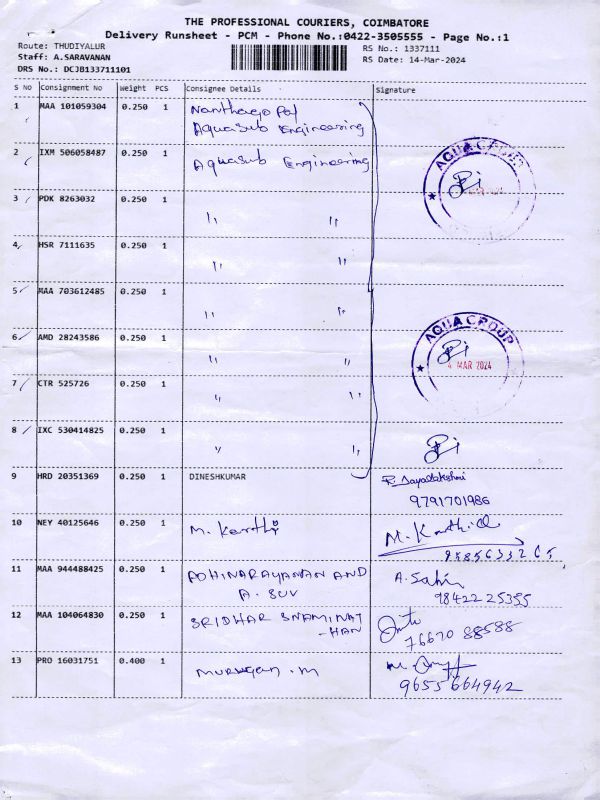 THE PROFESSIONAL COURIERS, COIMBATORE
Delivery Runsheet - PCM - Phone No.:0422-3505555 - Page No.:1
Route: THUDIYALUR
Staff: A.SARAVANAN
DRS No.: DCJB133711101
RS No.: 1337111
RS Date: 14-Mar-2024
S NO Consignment No Weight PCS Consignee Details Signature
1 MAA 101059304 0.250 1
Aquasub Engineering
2 IXM 506058487 0.250 1 Aquasub Engineering
AQUA GROUP
3 PDK 8263032 0.250 1
" "
4 HSR 7111635 0.250 1
" "
5 MAA 703612485 0.250 1
" "
AQUA GROUP
6 AMD 28243586 0.250 1
" "
MAR 2024
7 CTR 525726 0.250 1
" "
8 IXC 530414825 0.250 1
" "
9 HRD 20351369 0.250 1 DINESHKUMAR
9791701986
10 NEY 40125646 0.250 1 M. Karthi
M. Karthi
11 MAA 944488425 0.250 1 ADHINARAYANAN AND
A. SUV
A. Sahi
98422 25355
12 MAA 104064830 0.250 1 SRIDHAR SWAMINAT
-HAN
76670 88588
13 PRO 16031751 0.400 1 Murugan .M
9655664942